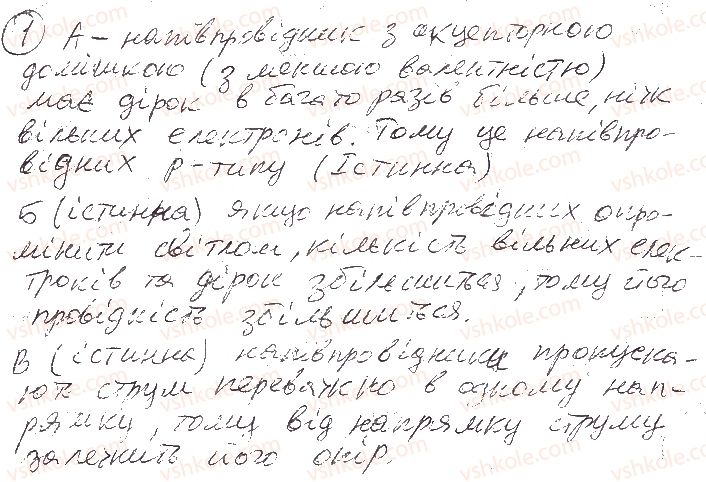 1 А – напівпровідник з акцепторною
домішкою (з меншою валентністю)
має дірок в багато разів більше, ніж
вільних електронів. Тому це напівпро-
відник p-типу (Істинна)
Б (істинна) якщо напівпровідник опро-
мінити світлом, кількість вільних елек-
тронів та дірок збільшиться, тому його
провідність збільшиться.
В (істинна) напівпровідники пропуска-
ють струм переважно в одному нап-
рямку, тому від напрямку струму
залежить його опір.